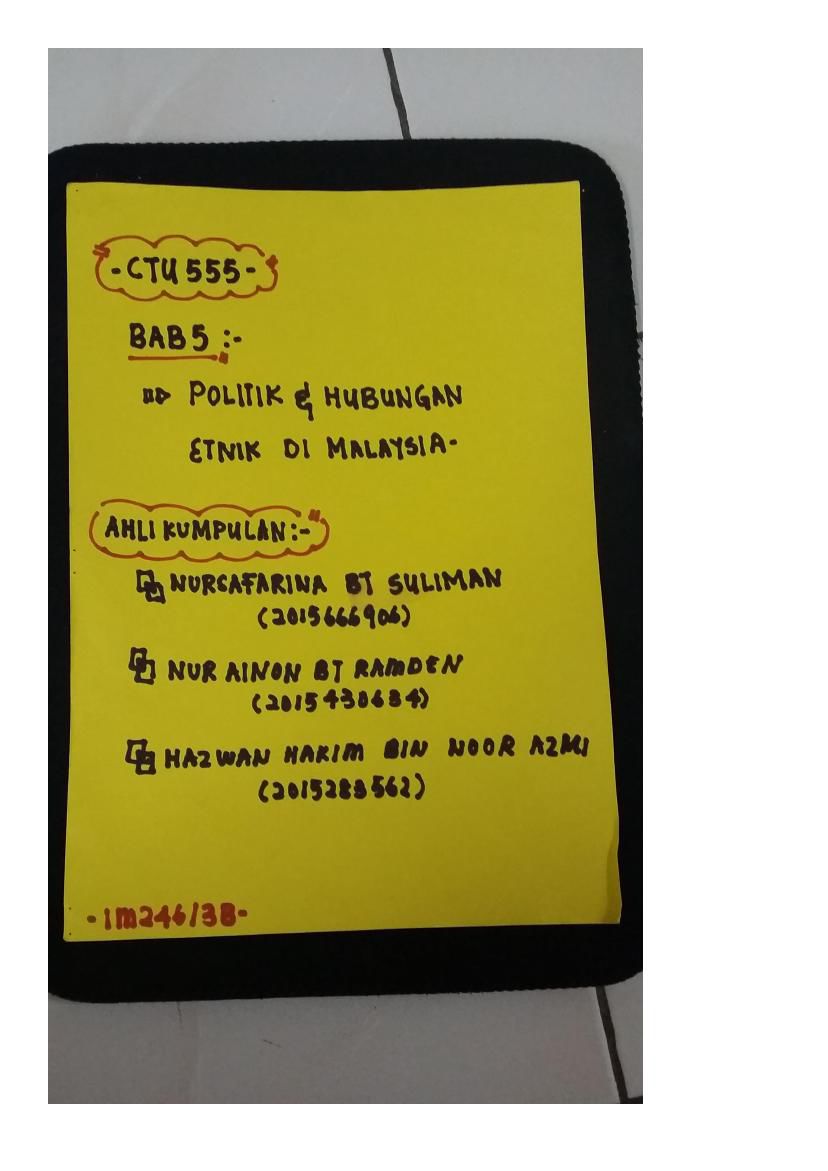 -CTU 555-
BAB 5 :-
POLITIK & HUBUNGAN
ETNIK DI MALAYSIA-
AHLI KUMPULAN:-
NURSAFARINA BT SULIMAN
(2015666906)
NUR AINON BT RAMDEN
(2015430684)
HAZWAN HAKIM BIN NOOR AZMI
(2015283562)
-IM246/3B-